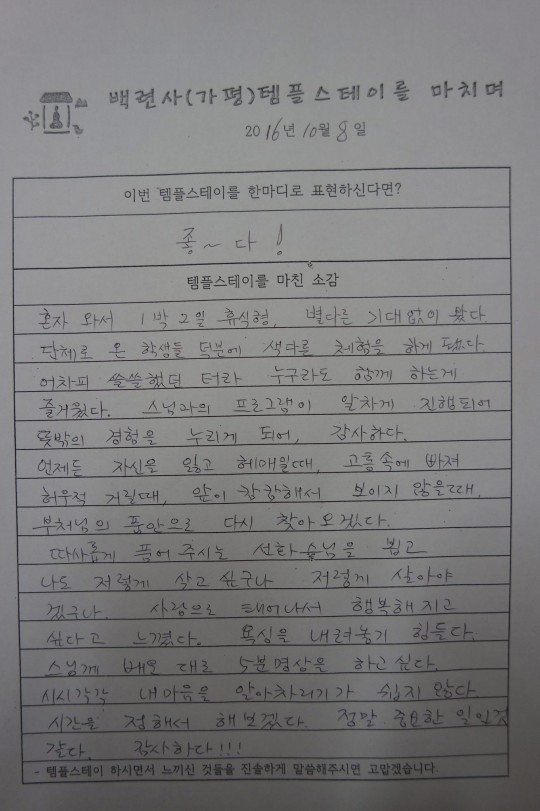 백련사(가평)템플스테이를 마치며
2016년 10월 8일
이번 템플스테이를 한마디로 표현하신다면?
좋~다!
템플스테이를 마친 소감
혼자 와서 1박 2일 휴식형. 별다른 기대없이 왔다
단체로 온 학생들 덕분에 색다른 체험을 하게 됐다.
어차피 쓸쓸했던 터라 누구라도 함께 하는게
즐거웠다. 스님과의 프로그램이 알차게 진행되어
뜻밖의 경험을 누리게 되어, 감사하다.
언제든 자신을 잃고 헤매일때, 고통속에 빠져
허우적 거릴때, 앞이 캄캄해서 보이지 않을때,
부처님의 품안으로 다시 찾아오겠다.
따사롭게 품어 주시는 선하 스님을 뵙고
나도 저렇게 살고 싶구나 저렇게 살아야
겠구나. 사람으로 태어나서 행복해지고
싶다고 느꼈다. 욕심을 내려놓기 힘들다.
스님께 배운 대로 5분명상을 하고 싶다.
시시각각 내마음을 알아차리기가 쉽지 않다.
시간을 정해서 해보겠다. 정말 중요한 일인것
같다. 감사하다!!!
- 템플스테이 하시면서 느끼신 것들을 진솔하게 말씀해주시면 고맙겠습니다.